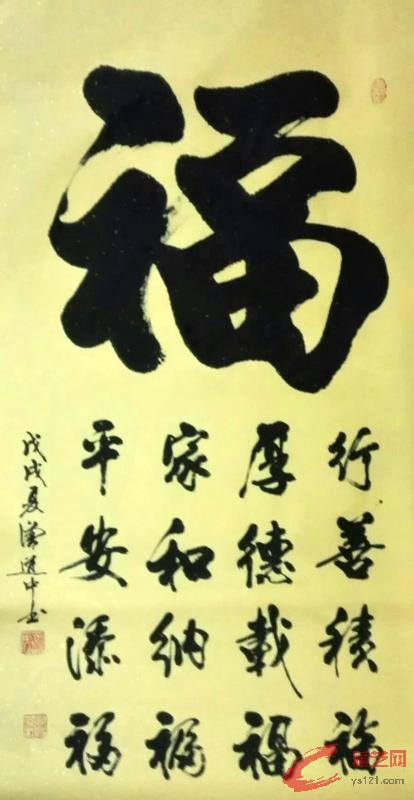 福
行善積福
厚德載福
家和納福
平安添福
戊戌夏 道中书
艺网
ys121.com